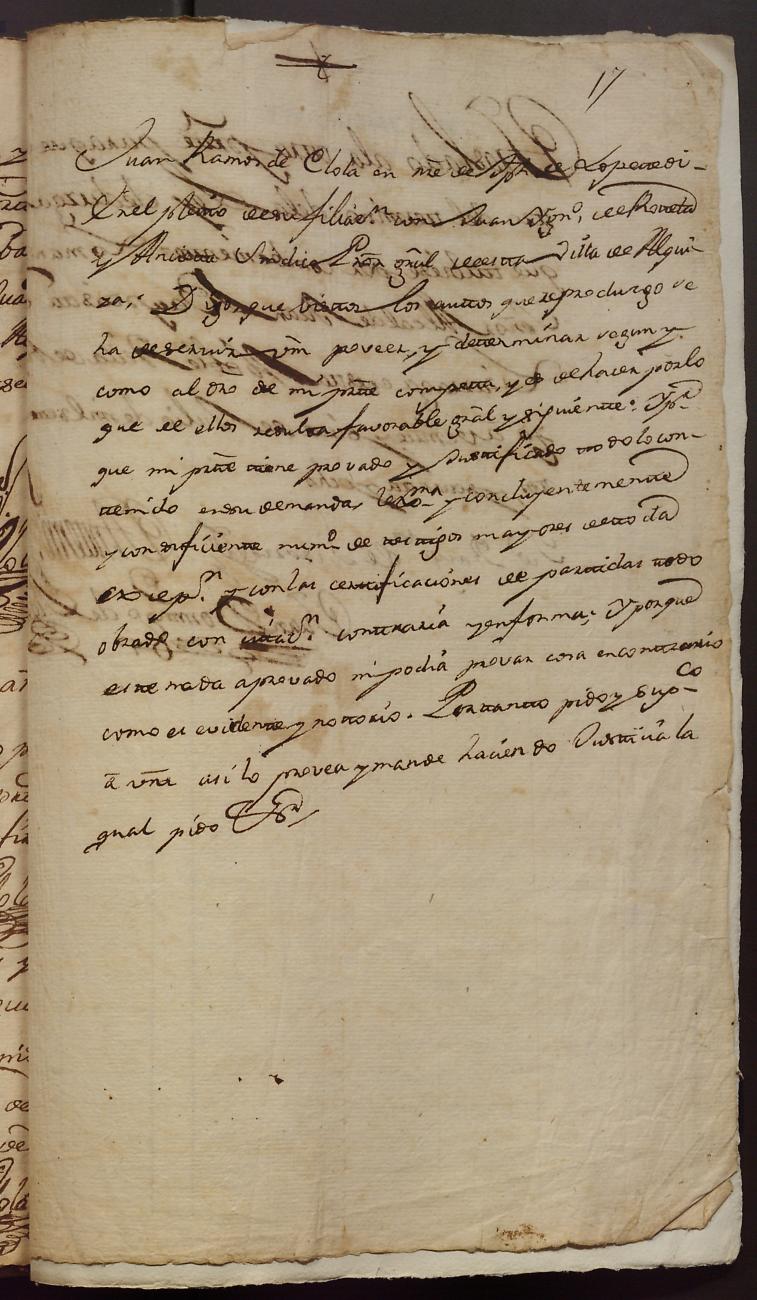 17
Juan Ramos de Elola en nre de Jph de Lopetedi-
En el pleito de su filiaon con Juan Ygno, de Roveta
y Arrieta Sindico Pror gral de esta Villa de Alqui-
za. Digo que vistos los auttos que reproduzgo se
ha de servir vm proveer, y determinar segun y
como al dro de mi partte compette, y es de hazer por lo
que de ellos resulta favorable gral y siguiente: Y pr
que mi partte tiene provado y Justificado ttodo lo con-
ttenido en su demanda, y concluyentementte
y con suficiente numo de testigos mayores de toda
excepon y con las certificaciones de partidas todo
obrado con citaon contraria y en forma; Y porque
este nada a provado ni podia provar cosa en contrario
como es evidente y nottorio. Portantto pido y supco
â vm asi lo provea y mande haciendo Justicia la
qual pido